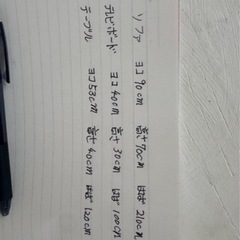 ソファ ヨコ90cm 高さ70cm はば210cm
テレビボード ヨコ40cm 高さ30cm はば100cm
テーブル ヨコ53cm 高さ40cm はば120cm